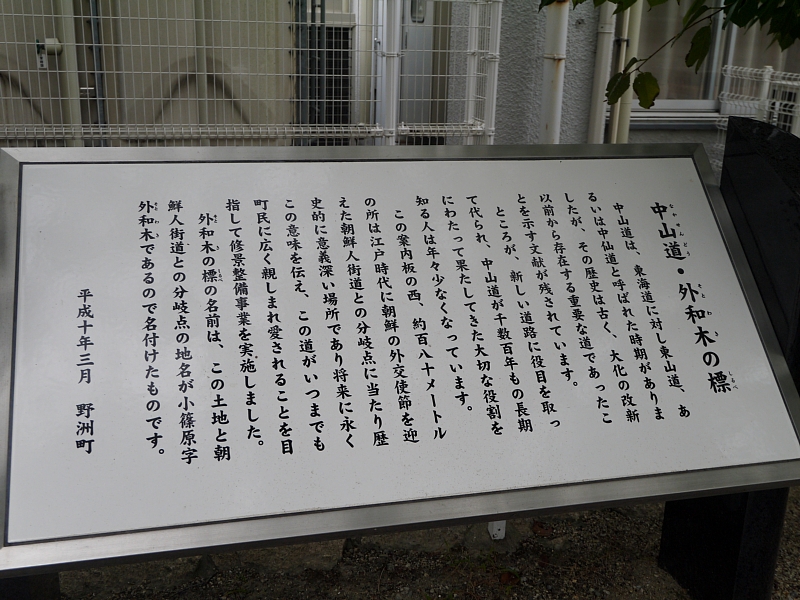 中山道・外和木の標
中山道は、東海道に対し東山道、あ
るいは中仙道と呼ばれた時期がありま
したが、その歴史は古く、大化の改新
以前から存在する重要な道であったこ
とを示す文献が残されています。
ところが、新しい道路に役目を取っ
て代られ、中山道が千数百年もの長期
にわたって果たしてきた大切な役割を
知る人は年々少なくなっています。
この案内板の西、約百八十メートル
の所は江戸時代に朝鮮の外交使節を迎
えた朝鮮人街道との分岐点に当たり歴
史的に意義深い場所であり将来に永く
この意味を伝え、この道がいつまでも
町民に広く親しまれ愛されることを目
指して修景整備事業を実施しました。
外和木の標の名前は、この土地と朝
鮮人街道との分岐点の地名が小篠原字
外和木であるので名付けたものです。
平成十年三月 野洲町